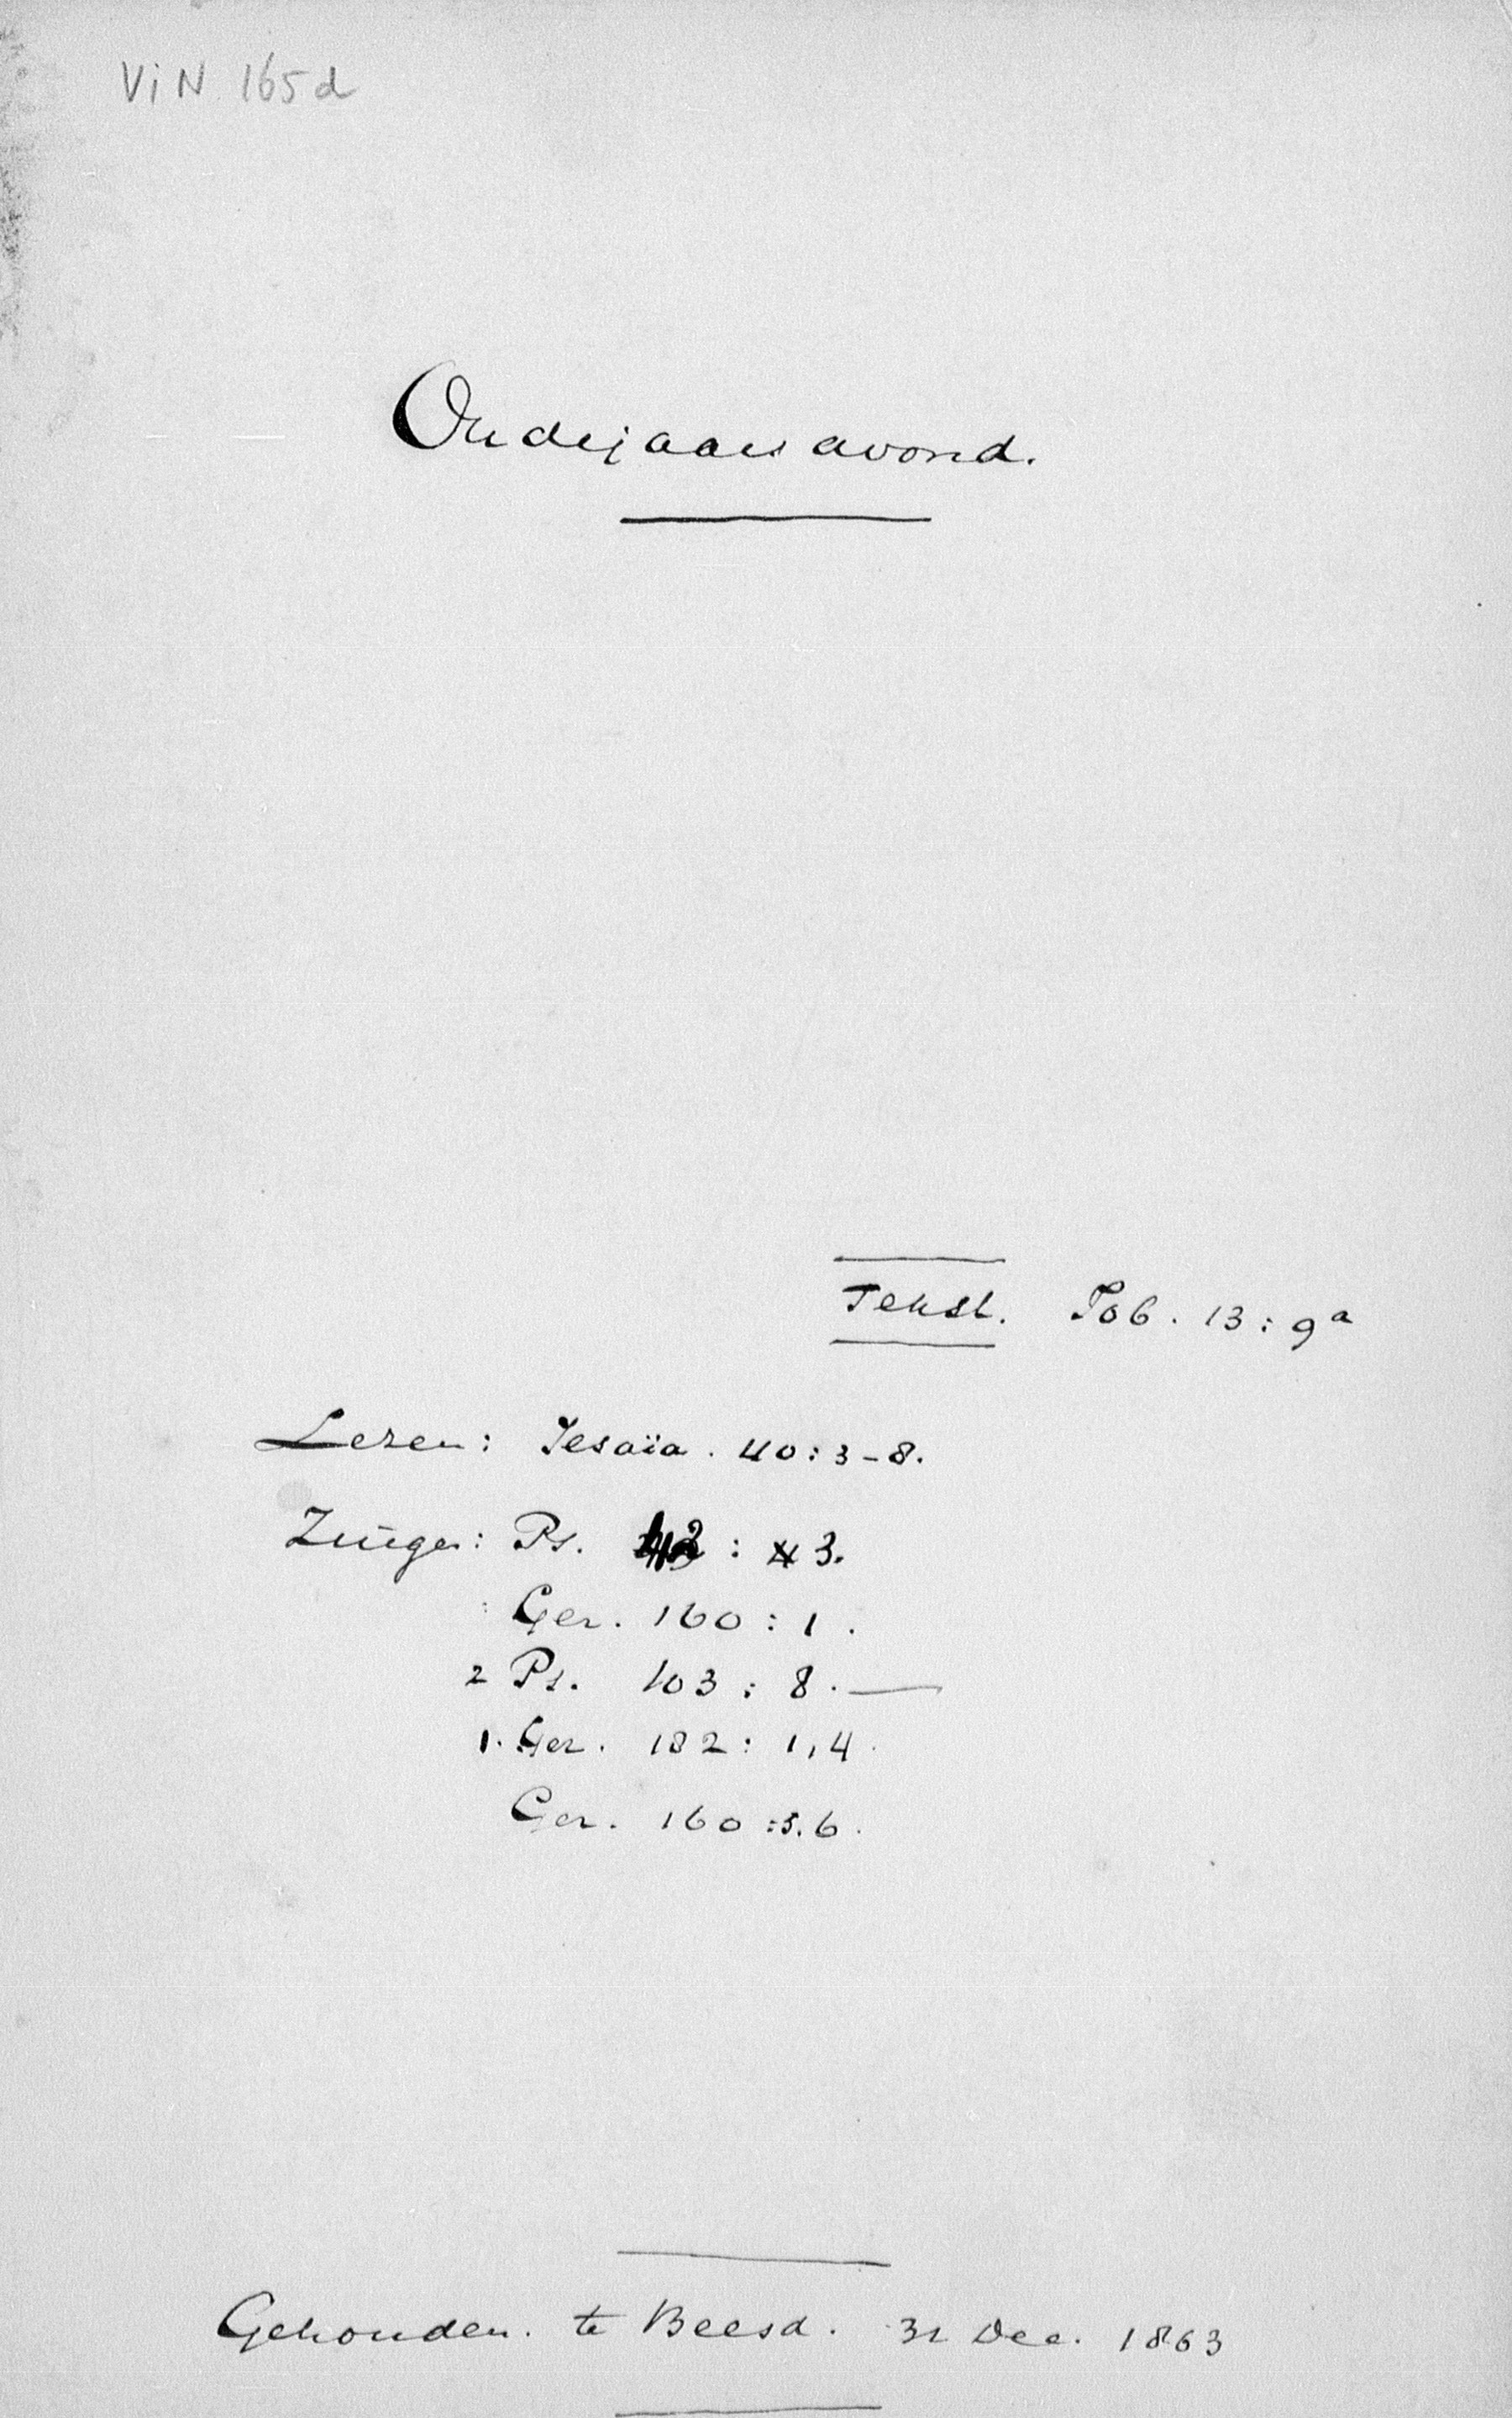 ViN 165d
Oudejaarsavond.
Tekst. Job. 13:9a
Lezen: Jesaïa. 40:3-8.
Zingen: Ps. : 3.
Gez. 160:1.
2 Ps. 103:8.—
1. Gez. 182:1,4.
Gez. 160:5.6.
Gehouden. te Beesd. 31 Dec. 1863